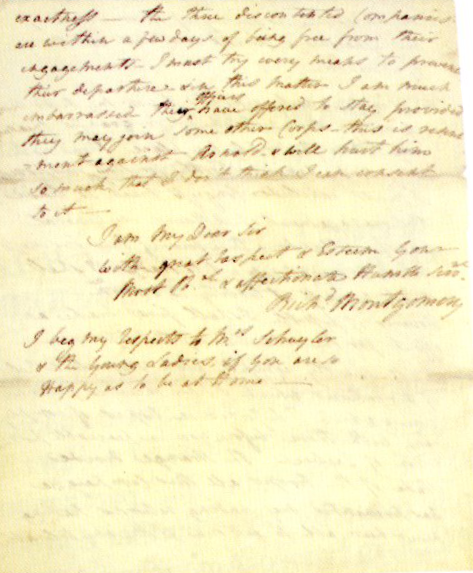 exactness — the three discontented Companies
are within a few days of being free from their
engagements. I must try every means to prevent
their departure & in this matter I am much
officers
embarrassed their have offered to stay, provided
they may join some other Corps — this is resent
-ment against Arnold & will hurt him
so much, that I don't think I can consent
to it —
I am My Dear Sir
with great Respect & Esteem Your
Most Ob.t & affectionate Humble Serv.t
Rich.d Montgomery
I beg my respects to Mrs Schuyler
& the Young Ladies, if You are so
Happy as to be at Home —